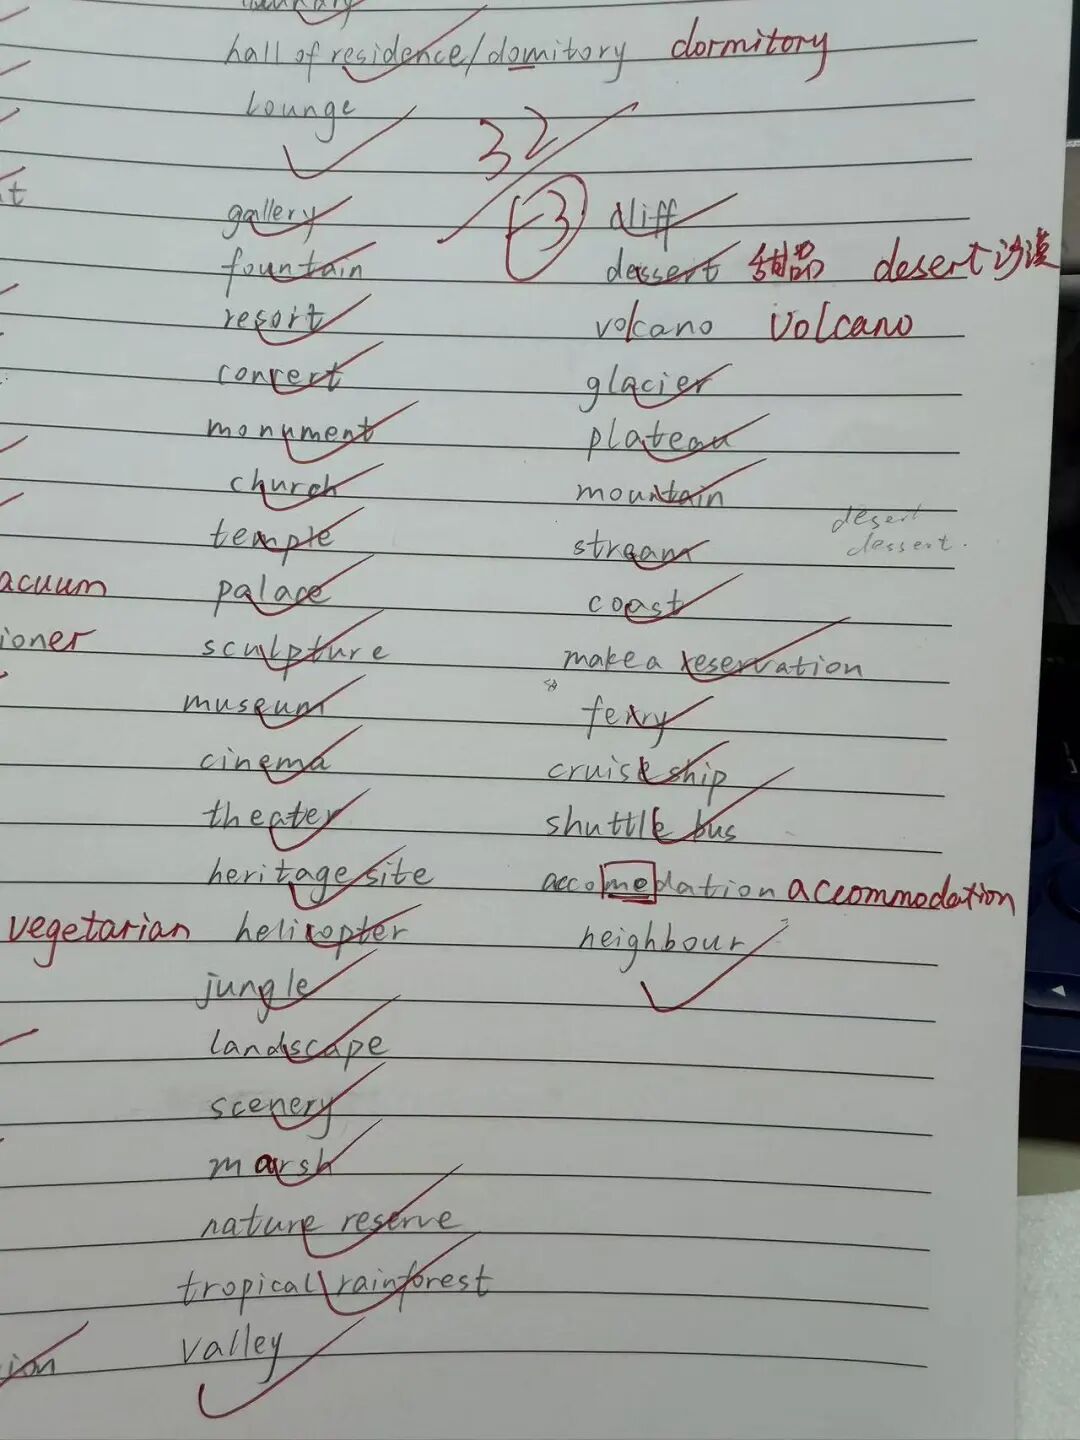 hall of residence/domitory dormitory
lounge
32
-3
gallery
fountain
resort
concert
monument
church
temple
palace
sculpture
museum
cinema
theater
heritage site
helicopter
jungle
landscape
scenery
marsh
nature reserve
tropical rainforest
valley
cliff
dessert 甜品 desert 沙漠
volcano volcano
glacier
plateau
mountain
stream
coast
desert
dessert.
make a reservation
ferry
cruise ship
shuttle bus
accomedation accommodation
neighbour
acuum
ioner
vegetarian
ion